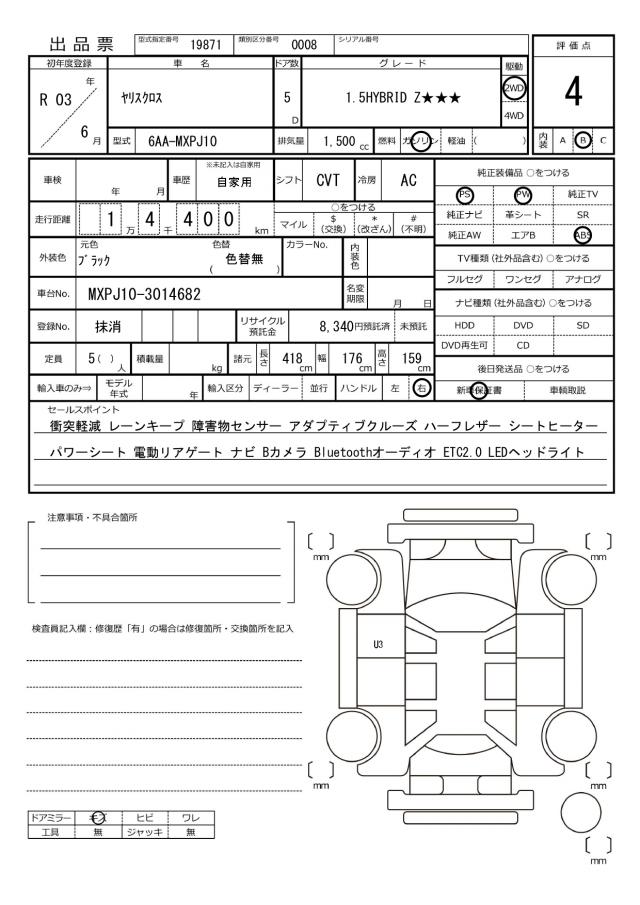 出品票 型式指定番号 19871 類別区分番号 0008 シリアル番号
評価点
4
初年度登録 車名 ドア数 グレード 駆動
R 03 年 6 月 ヤリスクロス 5 D 1.5HYBRID Z★★★ 2WD 4WD
型式 6AA-MXPJ10 排気量 1,500 cc 燃料 ガソリン 軽油 ( )
内装 A B C
車検 年 月 車歴 ※未記入は自家用 自家用 シフト CVT 冷房 AC
走行距離 1 万 4 千 4 0 0 km
○をつける
マイル $ (交換) * (改ざん) # (不明)
外装色 元色 ブラック 色替 ( 色替無 ) カラーNo. 内装色
車台No. MXPJ10-3014682 名変期限 月 日
登録No. 抹消 リサイクル預託金 8,340円預託済 未預託
定員 5( )人 積載量 kg 諸元 長さ 418 cm 幅 176 cm 高さ 159 cm
輸入車のみ⇒ モデル年式 年 輸入区分 ディーラー 並行 ハンドル 左 右
純正装備品 ○をつける
PS PW 純正TV
純正ナビ 革シート SR
純正AW エアB ABS
TV種類 (社外品含む) ○をつける
フルセグ ワンセグ アナログ
ナビ種類 (社外品含む) ○をつける
HDD DVD SD
DVD再生可 CD
後日発送品 ○をつける
新車保証書 車輌取説
セールスポイント
衝突軽減 レーンキープ 障害物センサー アダプティブクルーズ ハーフレザー シートヒーター
パワーシート 電動リアゲート ナビ Bカメラ Bluetoothオーディオ ETC2.0 LEDヘッドライト
注意事項・不具合箇所
検査員記入欄：修復歴「有」の場合は修復箇所・交換箇所を記入
〔 〕 mm
〔 〕 mm
U3
〔 〕 mm
〔 〕 mm
〔 〕 mm
ドアミラー キズ ヒビ ワレ
工具 無 ジャッキ 無